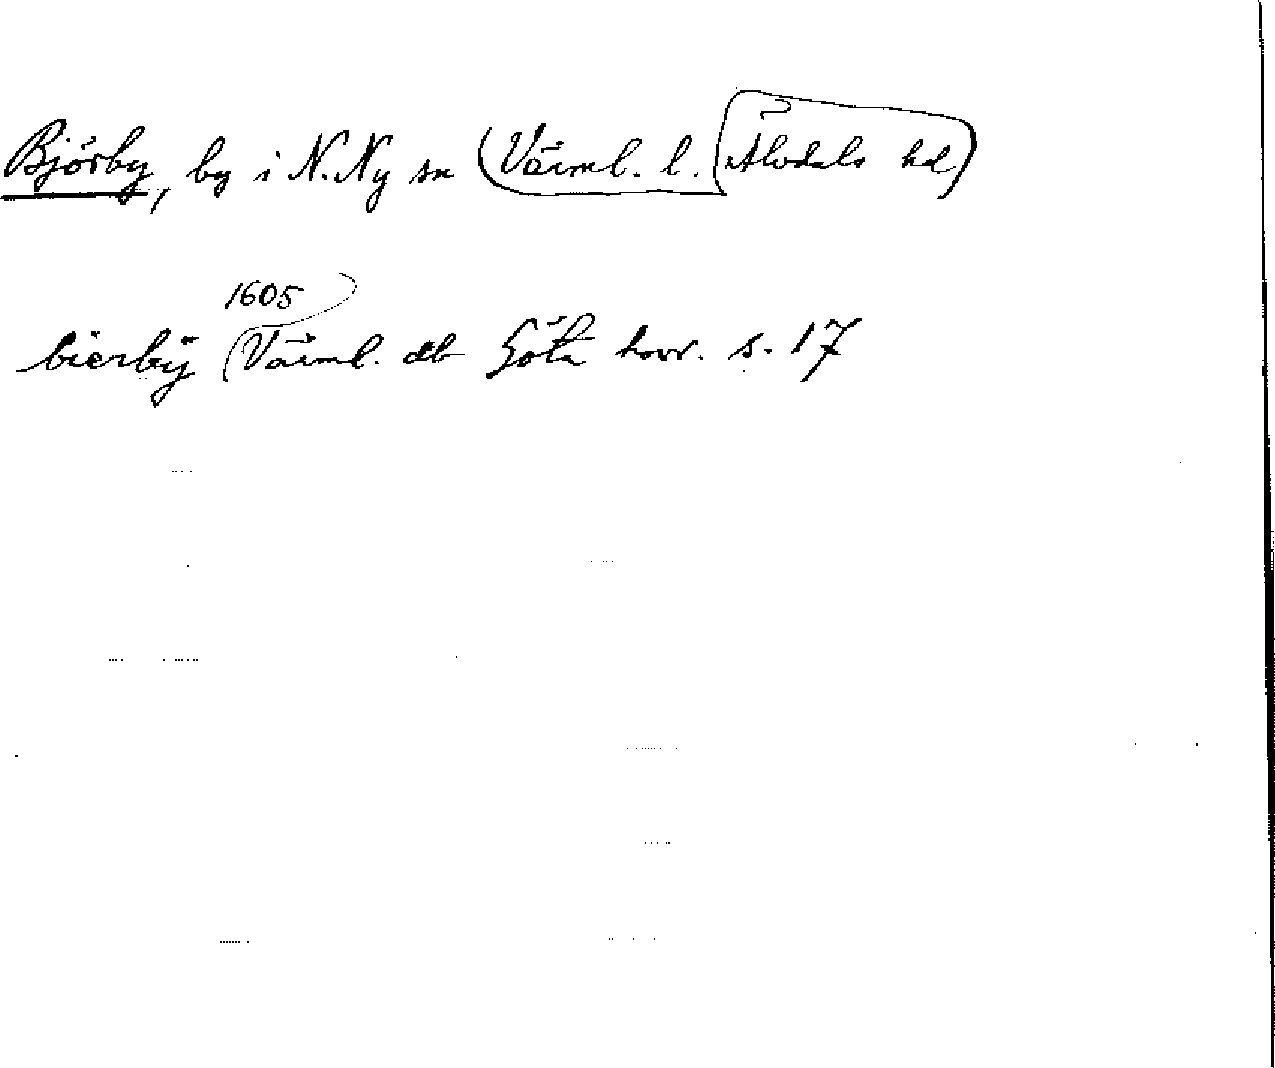 Björby, by i N. Ny sn (Värml. l. Älvdals hd)
1605
bierbÿ (Värml. db Göta hovr. s. 17